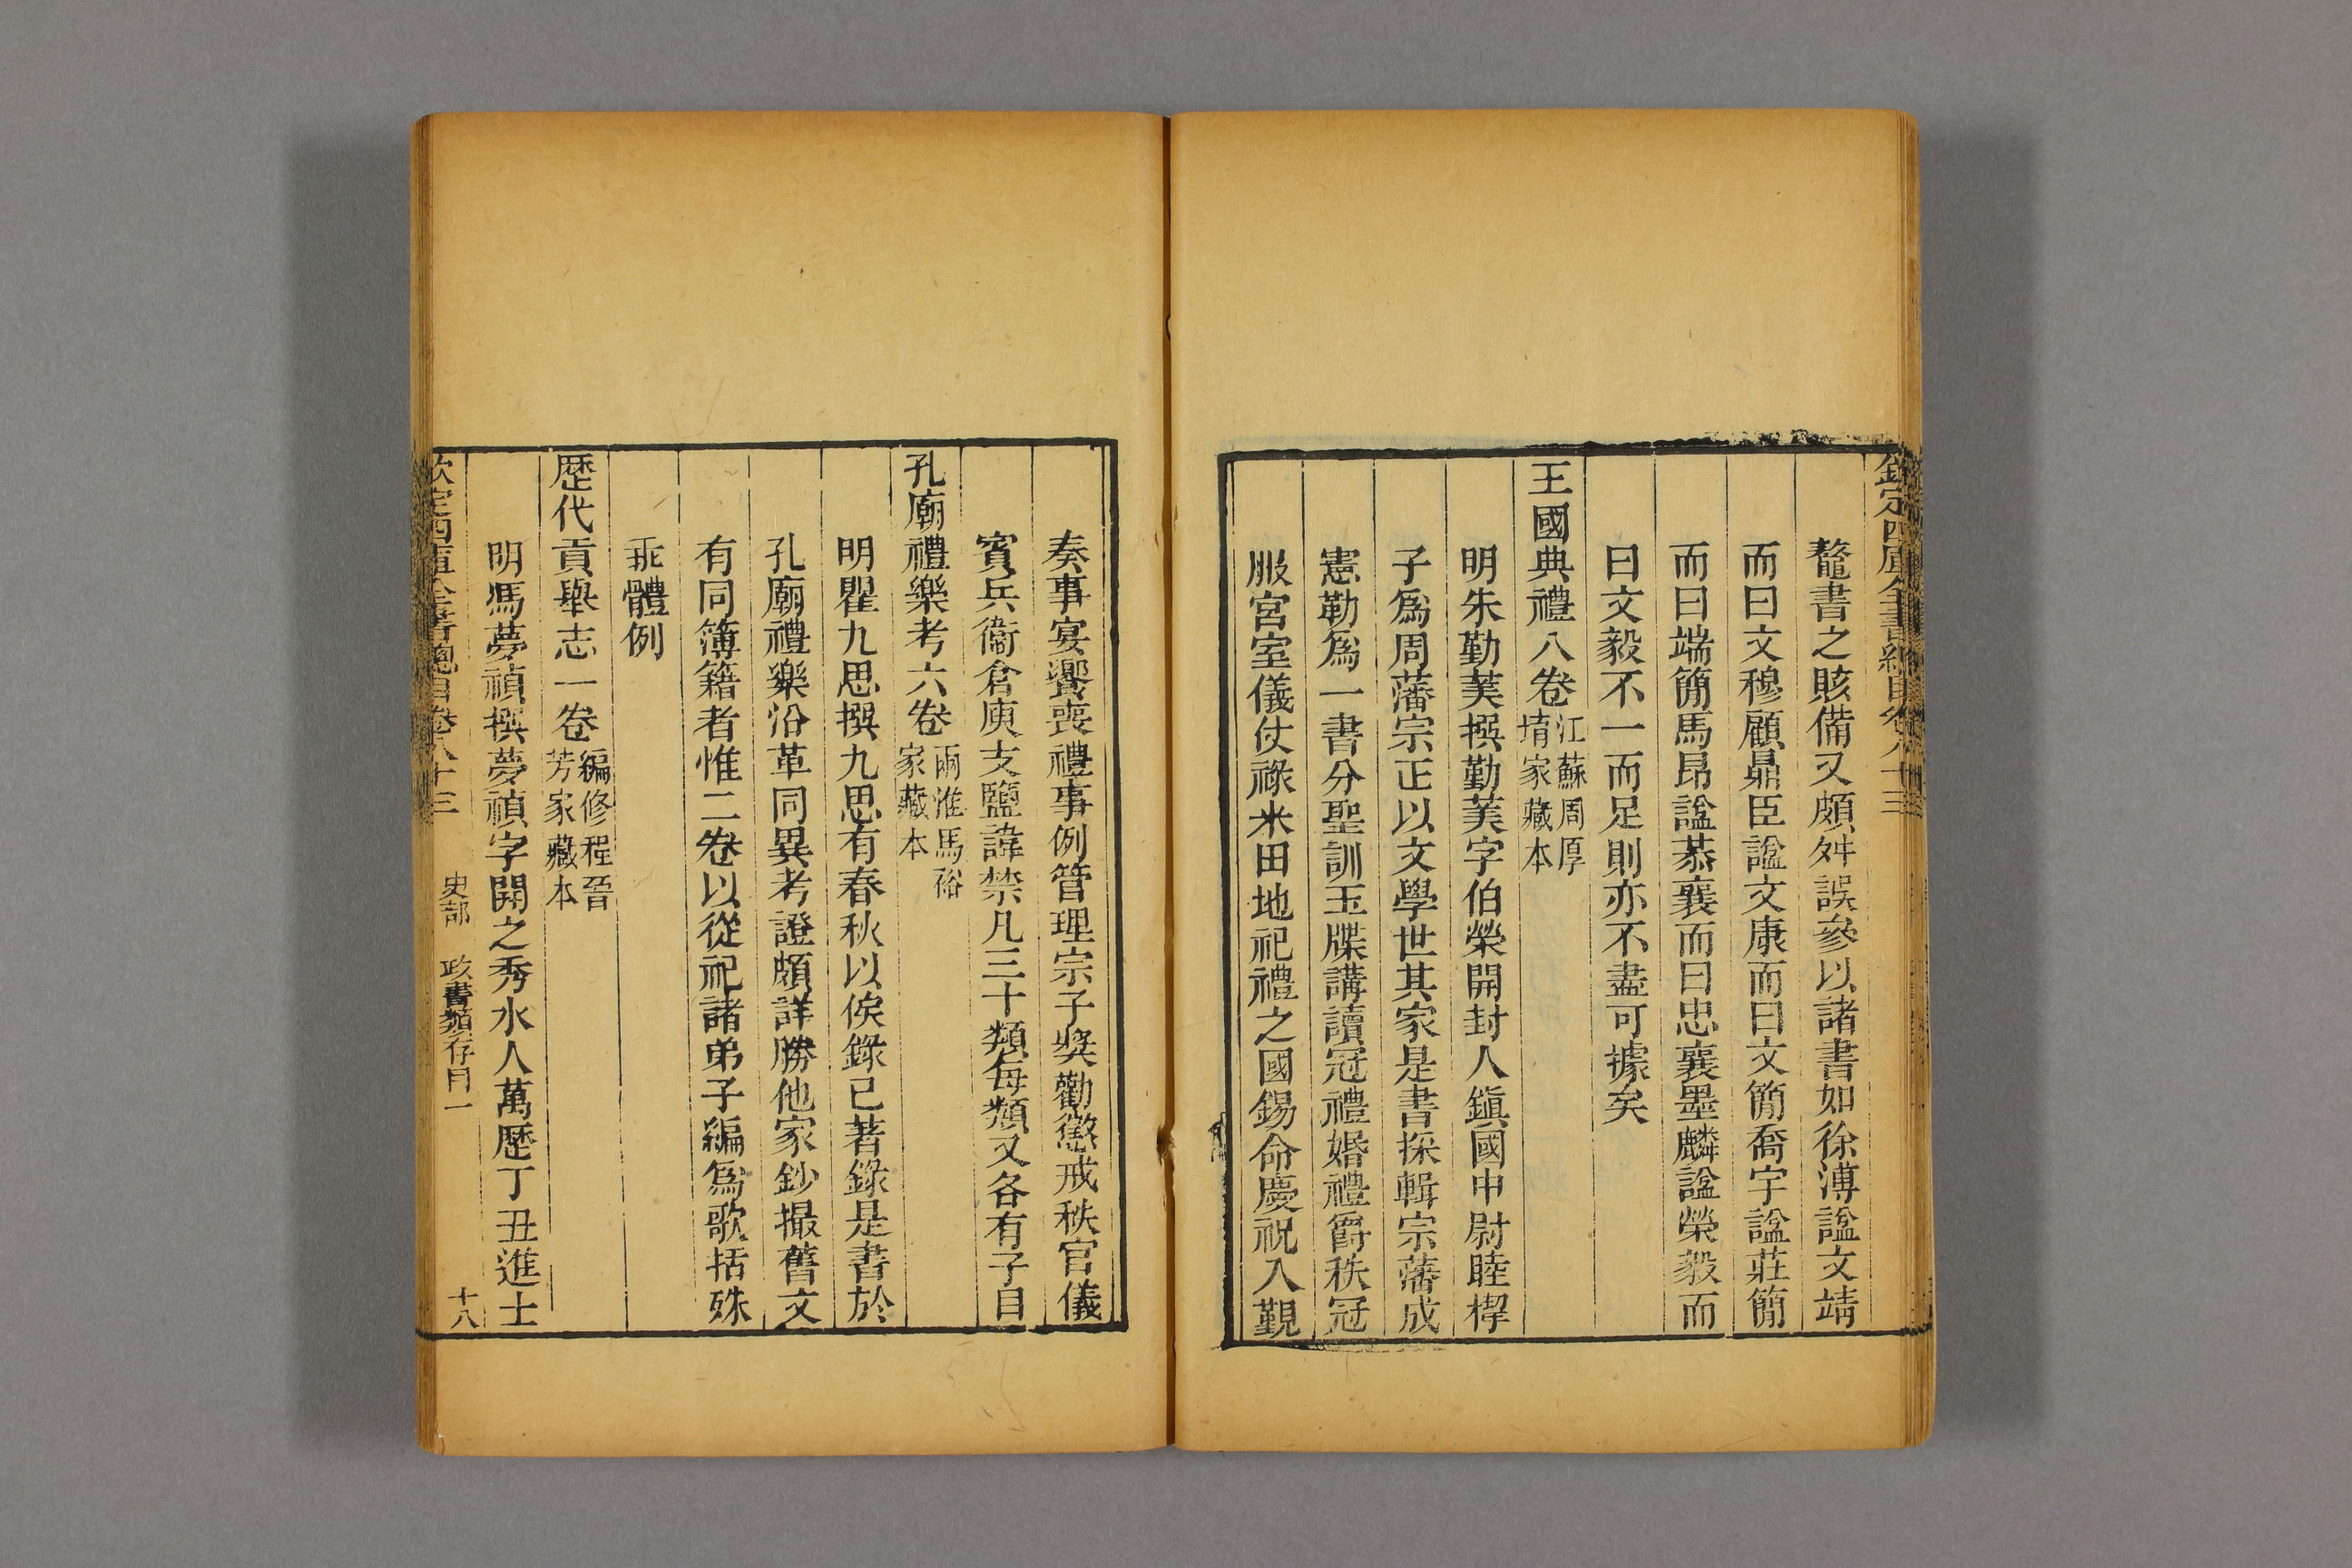 欽定四庫全書總目卷八十三
鼇書之賅備又頗舛誤參以諸書如徐溥諡文靖
而曰文穆顧鼎臣諡文康而曰文簡喬宇諡莊簡
而曰端簡馬昂諡恭襄而曰忠襄墨麟諡榮毅而
曰文毅不一而足則亦不盡可據矣
王國典禮八卷江蘇周厚堉家藏本
明朱勤美撰勤美字伯榮開封人鎭國中尉睦㮮
子爲周藩宗正以文學世其家是書採輯宗藩成
憲勒爲一書分聖訓玉牒講讀冠禮婚禮爵秩冠
服宮室儀仗祿米田地祀禮之國錫命慶祝入覲
奏事宴饗喪禮事例管理宗子奬勸懲戒秩官儀
賓兵衞倉庾支鹽諱禁凡三十類每類又各有子目
孔廟禮樂考六卷兩淮馬裕家藏本
明瞿九思撰九思有春秋以俟錄已著錄是書於
孔廟禮樂沿革同異考證頗詳勝他家鈔撮舊文
有同簿籍者惟二卷以從祀諸弟子編爲歌括殊
乖體例
歷代貢舉志一卷編修程晉芳家藏本
明馮夢禎撰夢禎字開之秀水人萬歷丁丑進士
欽定四庫全書總目卷八十三 史部 政書類存目一 十八